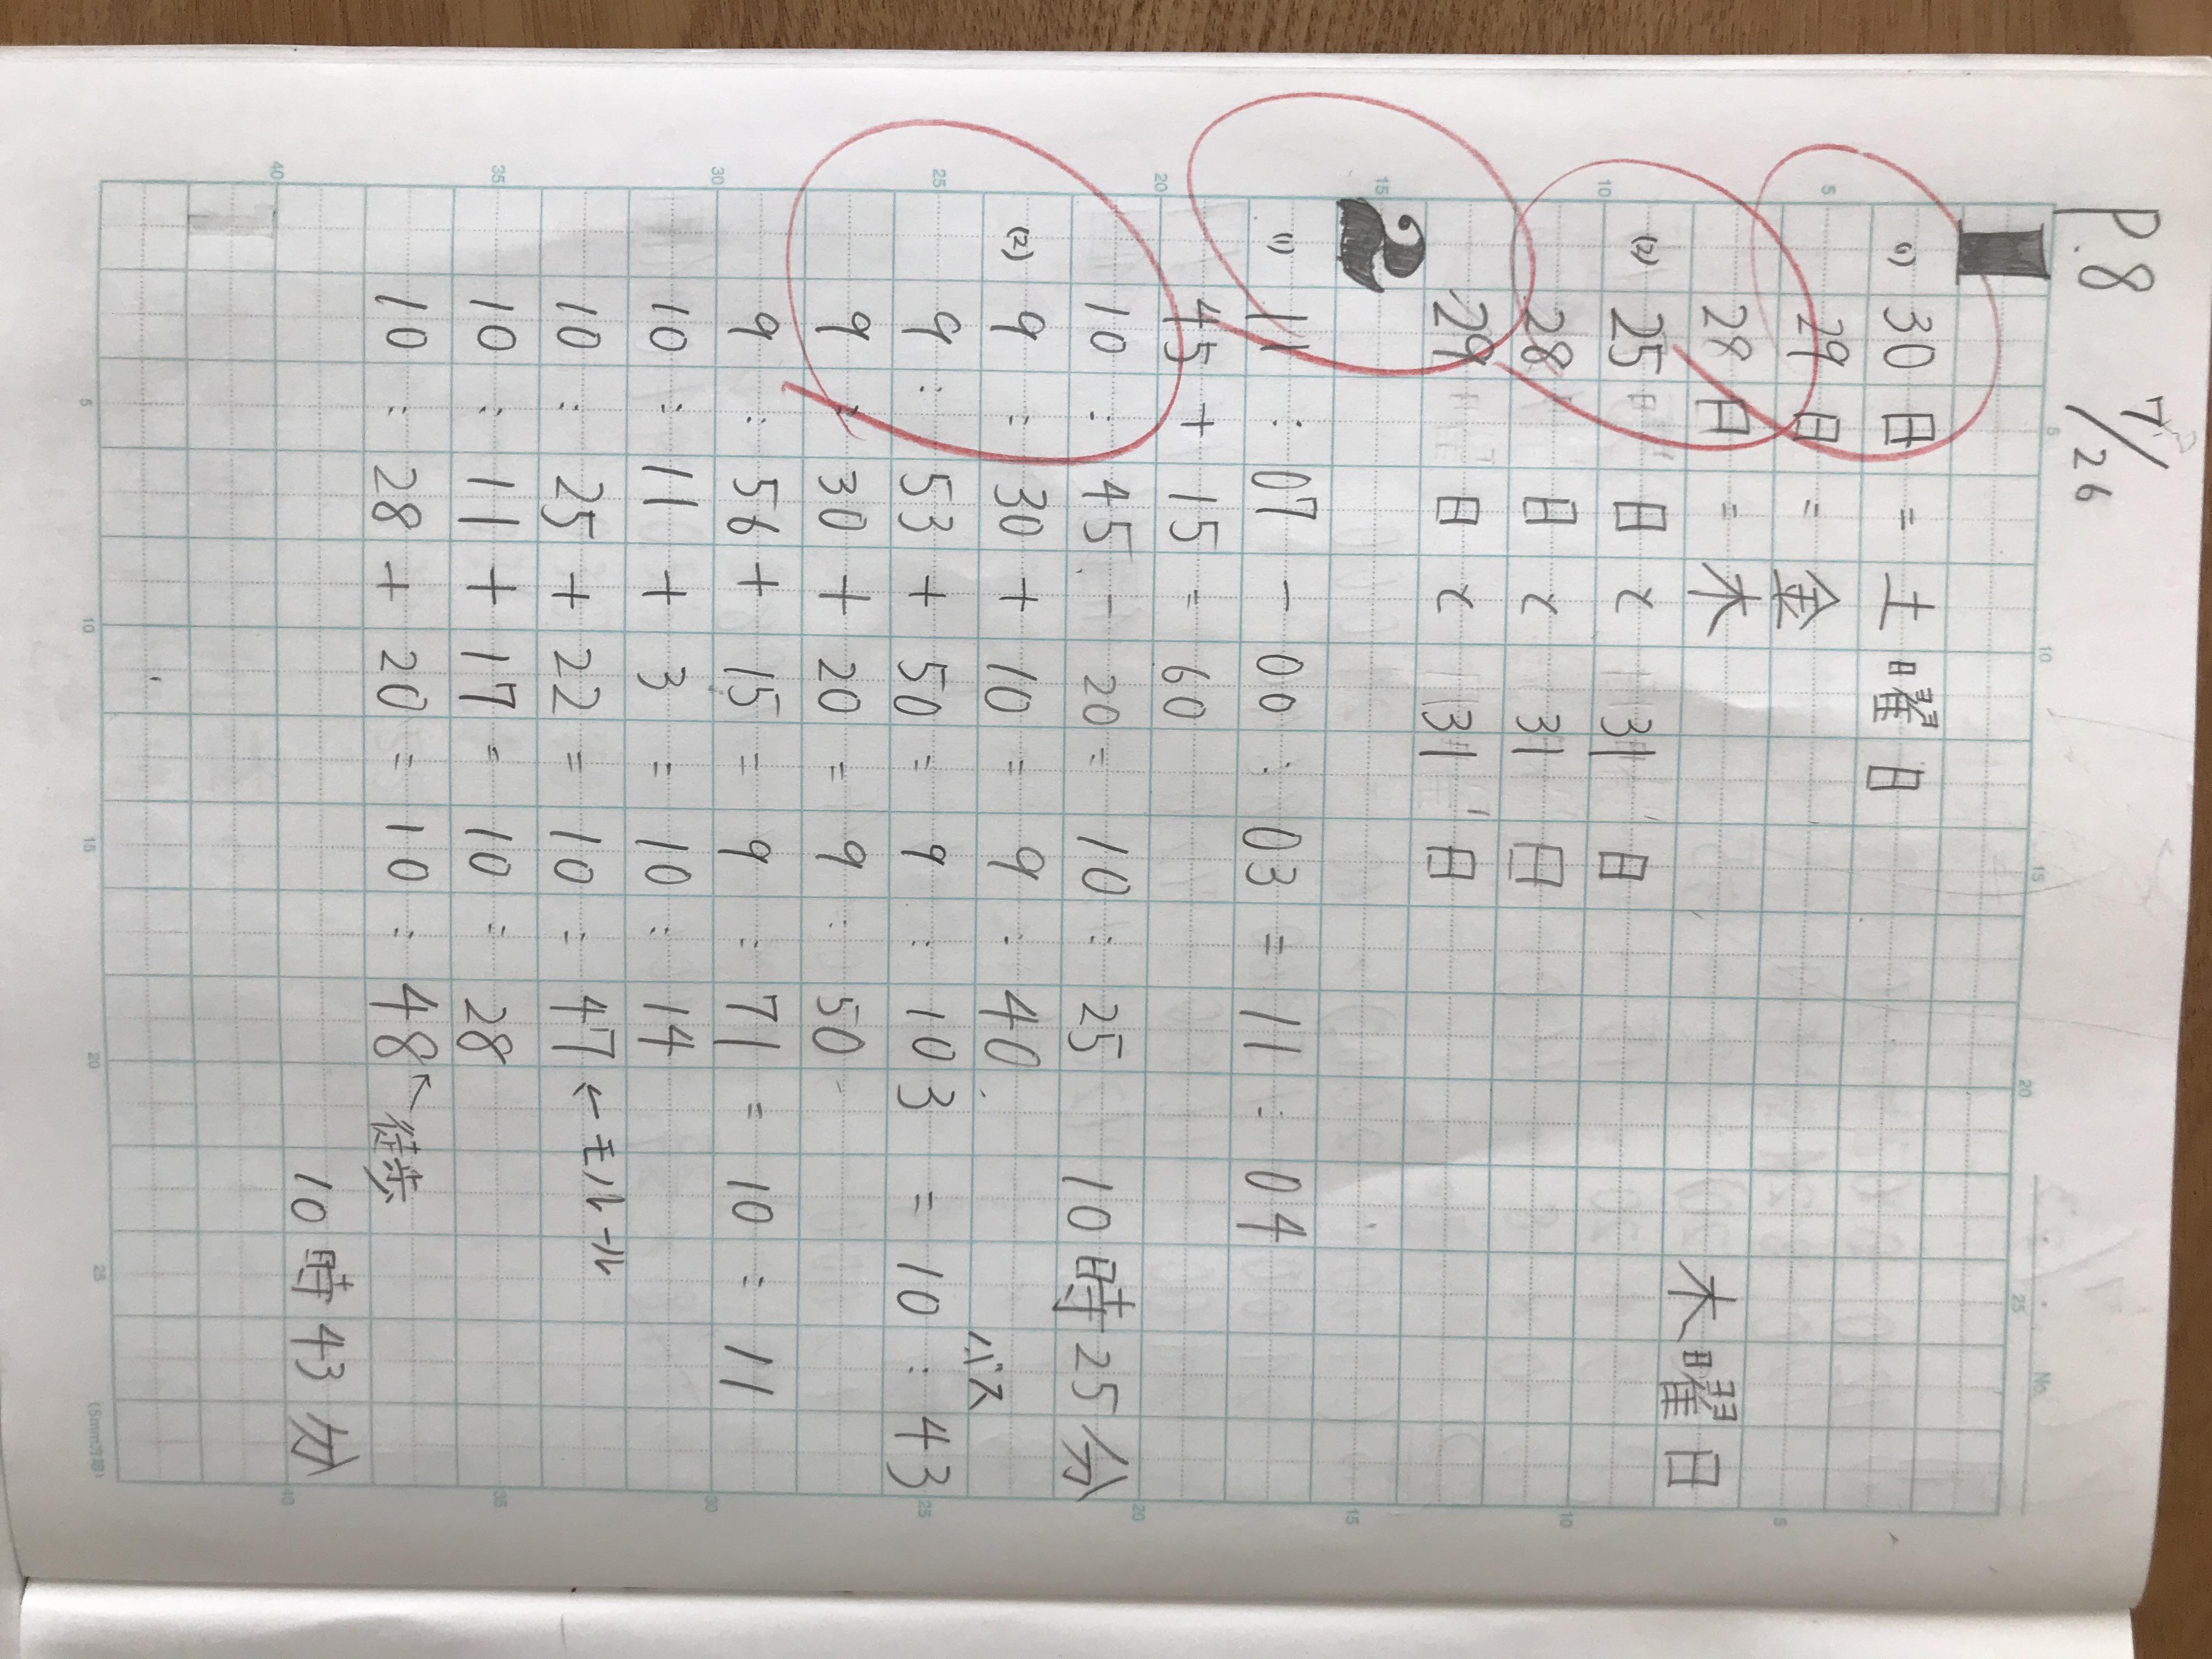 P.8 7/26
1
(1) 30日 = 土曜日
29日 = 金
28日 = 木 木曜日
(2) 25日と31日
28日と31日
29日と31日
2
(1) 11:07-00:03=11:04
45+15=60
10:45-20=10:25 10時25分
(2) 9:30+10=9:40 バス
9:53+50=9:103=10:43
9:30+20=9:50
9:56+15=9:71=10:11
10:11+3=10:14
10:25+22=10:47←モルール
10:11+17=10:28
10:28+20=10:48←徒歩
10時43分